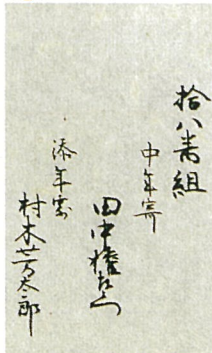 拾八番組
中年寄
田中権右衛門
添年寄
村木芳太郎